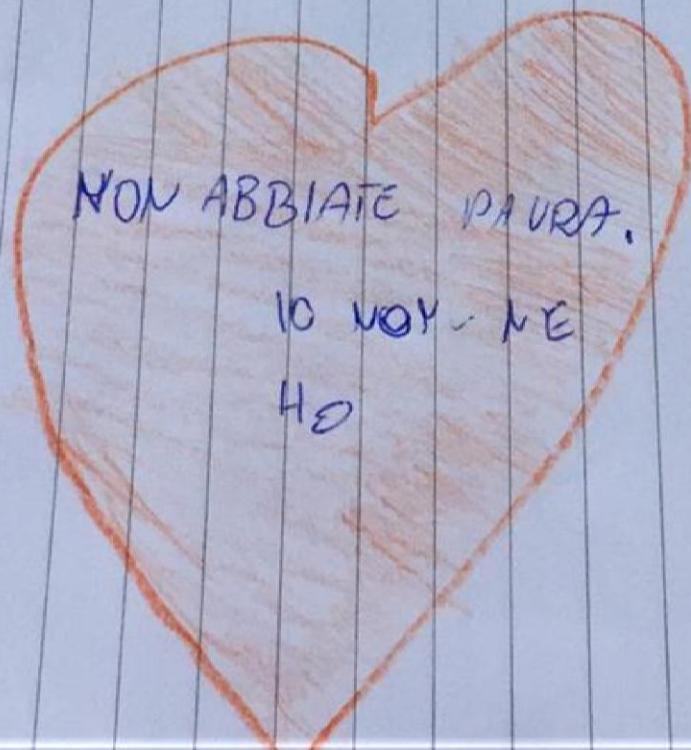 NON ABBIATE PAURA.
IO NON NE
HO